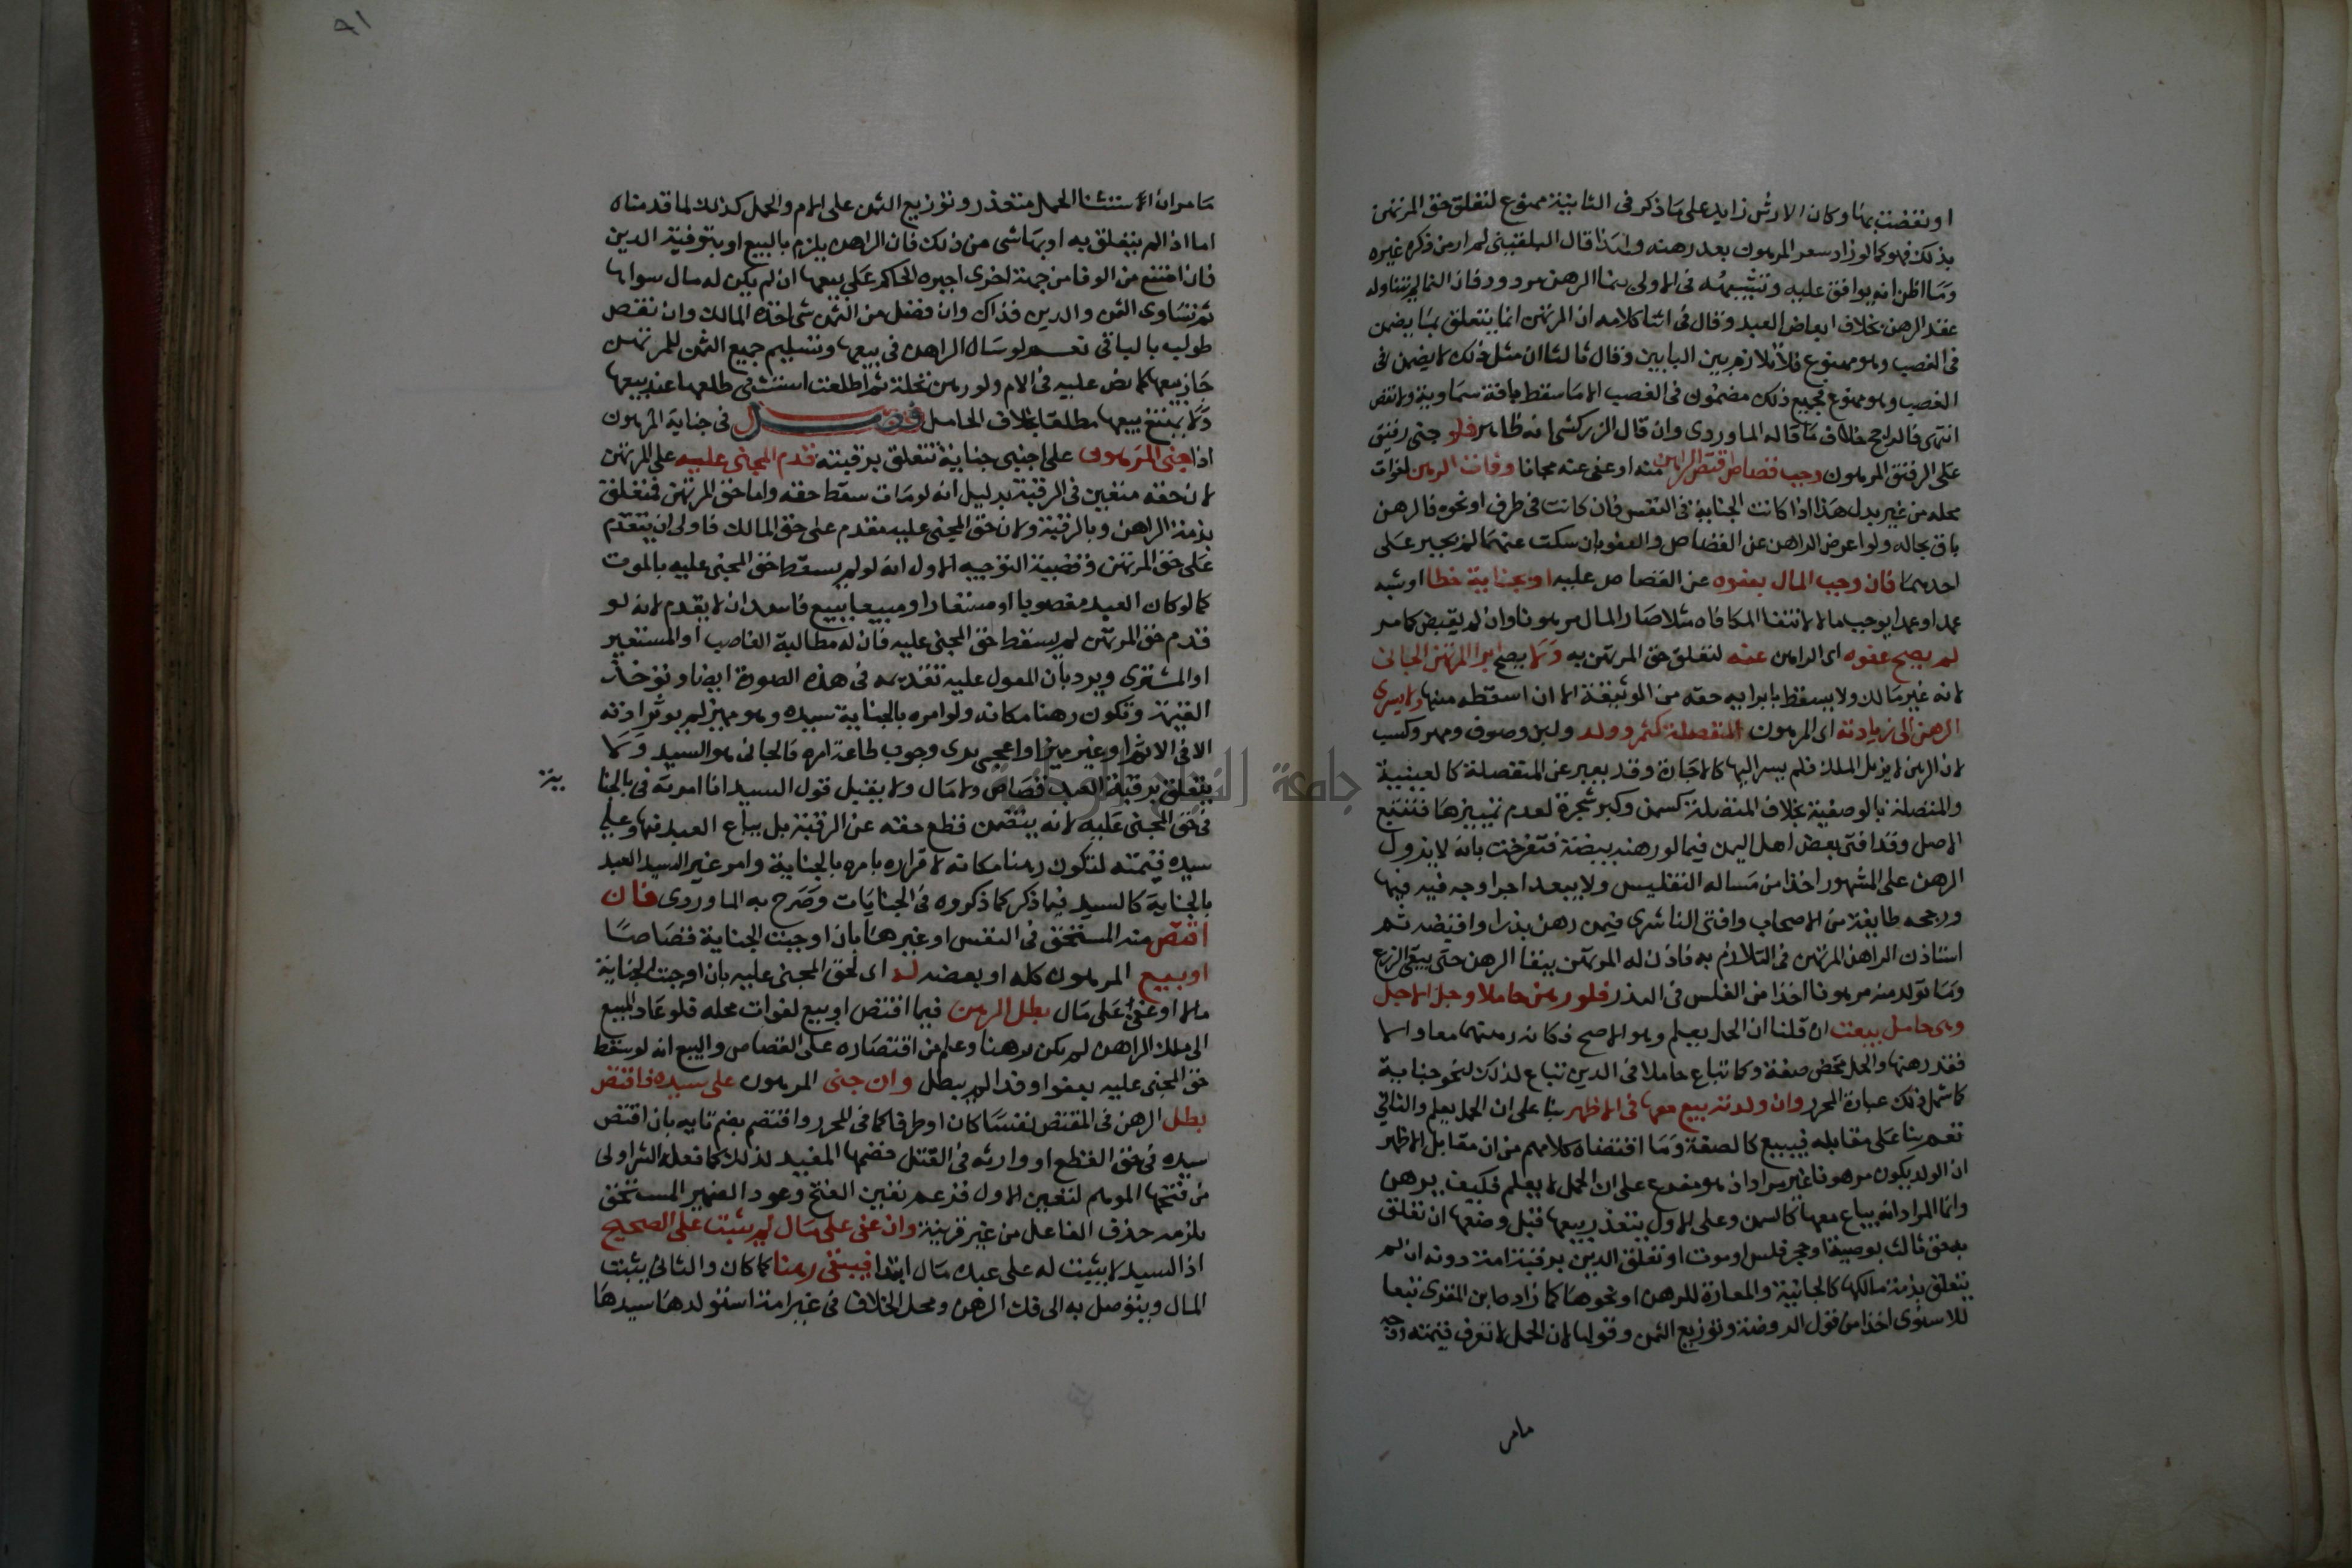 او نقضت بها وكان الارش زايد على ما ذكر فى الثانية ممنوع لتعلق حق المرتهن
بذلك فهو كما لو زاد سعر المرهون بعد رهنه ولهذا قال البلقينى لم ار من ذكره غيره
وما اظن انه يوافق عليه وتشبيهه فى الاولى بنما الرهن مردود فان النما لم يتناوله
عقد الرهن بخلاف ابعاض العبد وقال فى اثنا كلامه ان المرتهن انما يتعلق بما يضمن
فى الغصب وهو ممنوع فلا تلازم بين البابين وقال ثالثا ان مثل ذلك لا يضمن فى
الغصب وهو ممنوع فجميع ذلك مضمون فى الغصب الا ما سقط بافة سماوية ولا نقص
انتهى فالراجح خلاف ما قاله الماوردى وان قال الزركشى انه ظاهر فلو جنى رقيق
على الرقيق المرهون وجب قصاص اقتص الراهن منه او عفى عنه مجانا وفات الرهن لفوات
محله من غير بدل هذا اذا كانت الجناية فى النفس فان كانت فى طرف او نحوه فالرهن
باق بحاله ولو اعرض الراهن عن القصاص والعفو بان سكت عنهما لم يجبر على
احدهما فان وجب المال بعفوه عن القصاص عليه او بجناية خطا او شبه
عمد او عمد ايوجب مالا لانتفا المكافاه مثلا صار المال مرهونا وان لم يقبض كما مر
لم يصح عفوه اى الراهن عنه لتعلق حق المرتهن به ولا يصح ابرا المرتهن الجانى
لانه غير مالك ولا يسقط بابرايه حقه من الوثيقة الا ان اسقطه منها ولا يسرى
الرهن الى زيادته اى المرهون المنفصلة كثمر وولد ولبن وصوف ومهر وكسب
لان الرهن لا يزيل الملك فلم يسر اليها كالاجارة وقد يعبر عن المنفصلة كالعينية
والمتصلة بالوصفية بخلاف المتصلة كسمن وكبر شجرة لعدم تمييزها فتتبع
الاصل وقد افتى بعض اهل اليمن فيما لو رهنه بيضة فتفرخت بانه لا يزول
الرهن على المشهور اخذا من مساله التفليس ولا يبعد اجرا وجه فيه فيها
ورجحه طايفة من الاصحاب وافتى الناشرى فيمن رهن بذرا واقبضه ثم
استاذن الراهن المرتهن فى التلازم به فاذن له المرتهن ببقا الرهن حتى يبقى الزرع
وما تولد منه مرهونا اخذا من الفلس فى البذر فلو رهن حاملا وحل الاجل
وهى حامل بيعت ان قلنا ان الحمل يعلم وهو الاصح فكانه رهنهما معا والا
فقد رهنها والحمل محض صفة وكما تباع حاملا فى الدين تباع لذلك لنحو جناية
كما شمل ذلك عبارة المحرر وان ولدته بيع معها فى الاظهر بنا على ان الحمل يعلم والثانى
نعم بنا على مقابله فيبيع كالصفة وما اقتضاه كلامهم من ان مقابل الاظهر
ان الولد يكون مرهونا غير مراد اذ هو مفرع على ان الحمل لا يعلم فكيف يرهن
وانما المراد انه يباع معها كالسمن وعلى الاول يتعذر بيعها قبل وضعها ان تعلق
به حق ثالث بوصية او حجر فلس او موت او تعلق الدين برقبة امة دونه ان لم
يتعلق بذمة مالكها كالجانية والمعارة للرهن او نحوها كما زاده ابن المقرى تبعا
للاسنوى اخذا من قول الروضة وتوزيع الثمن وقولها لان الحمل لا تعرف قيمته وجه
مامر
٩١
ما مر ان استثنا الحمل متعذر وتوزيع الثمن على الام والحمل كذلك لما قدمناه
اما اذا لم يتعلق به او بها شى من ذلك فان الراهن يلزم بالبيع او بتوفية الدين
فان امتنع من الوفا من جهة اخرى اجبره الحاكم على بيعها ان لم يكن له مال سواها
ثم تساوى الثمن والدين فذاك وان فضل من الثمن شى اخذه المالك وان نقص
طولب بالباقى نعم لو سال الراهن فى بيعها وتسليم جميع الثمن للمرتهن
جاز بيعها كما نص عليه فى الام ولو رهن نخلة ثم اطلعت استثنى طلعها عند بيعها
ولا يمتنع بيعها مطلقا بخلاف الحامل فصل فى جناية المرهون
اذا جنى المرهون على اجنبى جناية تتعلق برقبته قدم المجنى عليه على المرتهن
لان حقه متعين فى الرقبة بدليل انه لو مات سقط حقه واما حق المرتهن فمتعلق
بذمة الراهن وبالرقبة ولان حق المجنى عليه مقدم على حق المالك فاولى ان يتقدم
على حق المرتهن وقضية التوجيه الاول انه لو لم يسقط حق المجنى عليه بالموت
كما لو كان العبد مغصوبا او مستعارا او مبيعا ببيع فاسد ان لا يقدم لانه لو
قدم حق المرتهن لم يسقط حق المجنى عليه فان له مطالبة الغاصب او المستعير
او المشترى ويرد بان المعول عليه تقديمه فى هذه الصورة ايضا وتوخذ
القيمة وتكون رهنا مكانه ولو امره بالجناية سيده وهو مميز لم يوثر اذنه
الا فى الاثم او غير مميز او اعجمى يرى وجوب طاعة امره فالجانى هو السيد ولا
يتعلق برقبة العبد قصاص ولا مال ولا يقبل قول السيد انا امرته فى بالجنا
ية
فى حق المجنى عليه لانه يتضمن قطع حقه عن الرقبة بل يباع العبد فيها وعلى
سيده قيمته لتكون رهنا مكانه لاقراره بامره بالجناية وامر غير السيد العبد
بالجناية كالسيد فيما ذكر كما ذكروه فى الجنايات وصرح به الماوردى فان
اقتص منه المستحق فى النفس او غيرها بان اوجبت الجناية قصاصا
او بيع المرهون كله او بعضه له اى لحق المجنى عليه بان اوجبت الجناية
مالا او عفى على مال بطل الرهن فيما اقتص او بيع لفوات محله فلو عاد المبيع
الى ملك الراهن لم يكن رهنا وعلم من اقتصاره على القصاص والبيع انه لو سقط
حق المجنى عليه بعفو او فدا لم يبطل وان جنى المرهون على سيده فاقتص
بطل الرهن فى المقتص نفسا كان او طرفا كما فى المحرر واقتص بضم تايه بان اقتص
سيده فى حق القطع او وارثه فى القتل فضمها المفيد لذلك كما نعله الشر اولى
من فتحها الموهم لتعين الاول فزعم تعين الفتح وعود الضمير المستحق
يلزمه حذف الفاعل من غير قرينة وان عفى على مال لم يثبت على الصحيح
اذ السيد لا يثبت له على عبده مال ابتدا فيبقى رهنا كما كان والثانى يثبت
المال ويتوصل به الى فك الرهن ومحل الخلاف فى غير امة استولدها سيدها
جامعة النجاح الوطنية